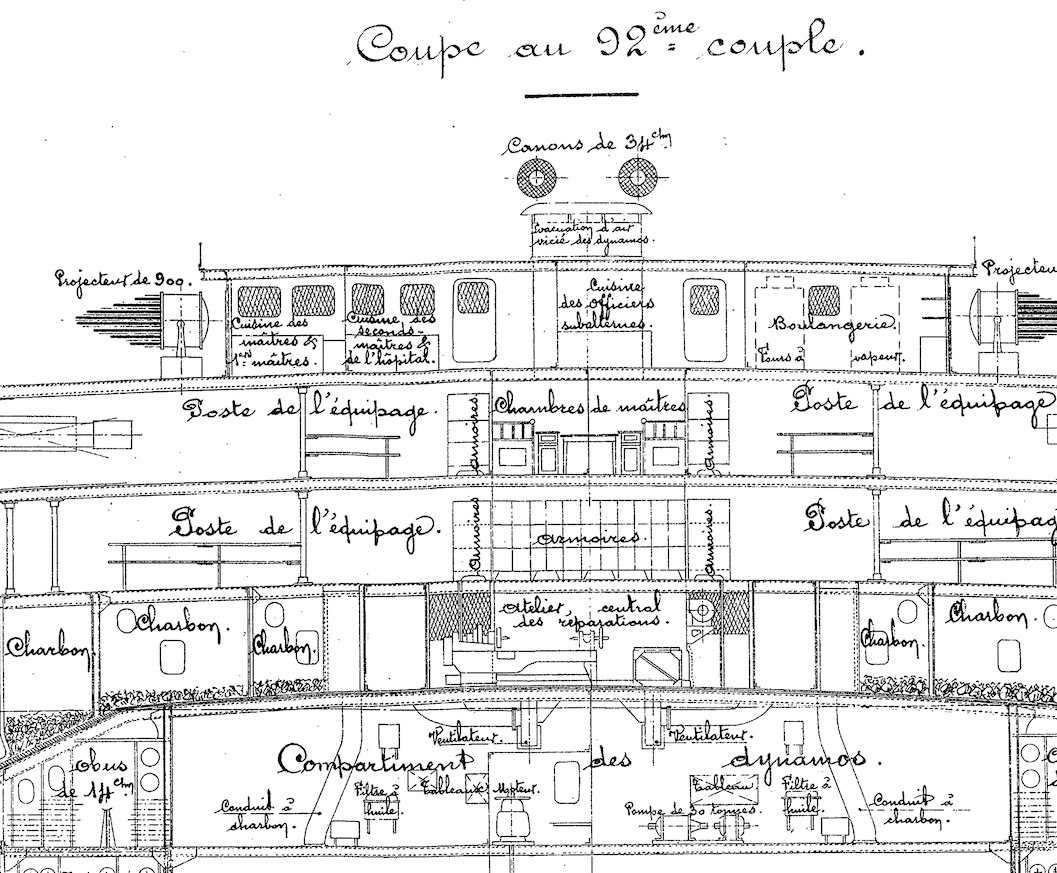 Coupe au 92ème couple.
Canons de 34 c/m
Evacuation d'air
vicié des dynamos.
Projecteur de 900.
Projecteu
Cuisine des
maîtres &
1ers maîtres.
Cuisine des
seconds-
maîtres &
de l'hôpital.
Cuisine
des officiers
subalternes.
Boulangerie.
Fours à
vapeur.
Poste de l'équipage.
Armoires
Chambres de maîtres
Armoires.
Poste de l'équipage
Poste de l'équipage.
Armoires
Armoires.
Armoires.
Poste de l'équipag
Charbon.
Charbon.
Charbon.
Atelier central
des réparations.
Charbon.
Charbon.
Ventilateur.
Ventilateur.
Compartiment des dynamos.
Obus
de 14 c/m
Conduit à
charbon.
Filtre à
huile.
Tableaux
Moteur.
Tableau.
Filtre à
huile.
Pompe de 30 tonnes
Conduit à
charbon.